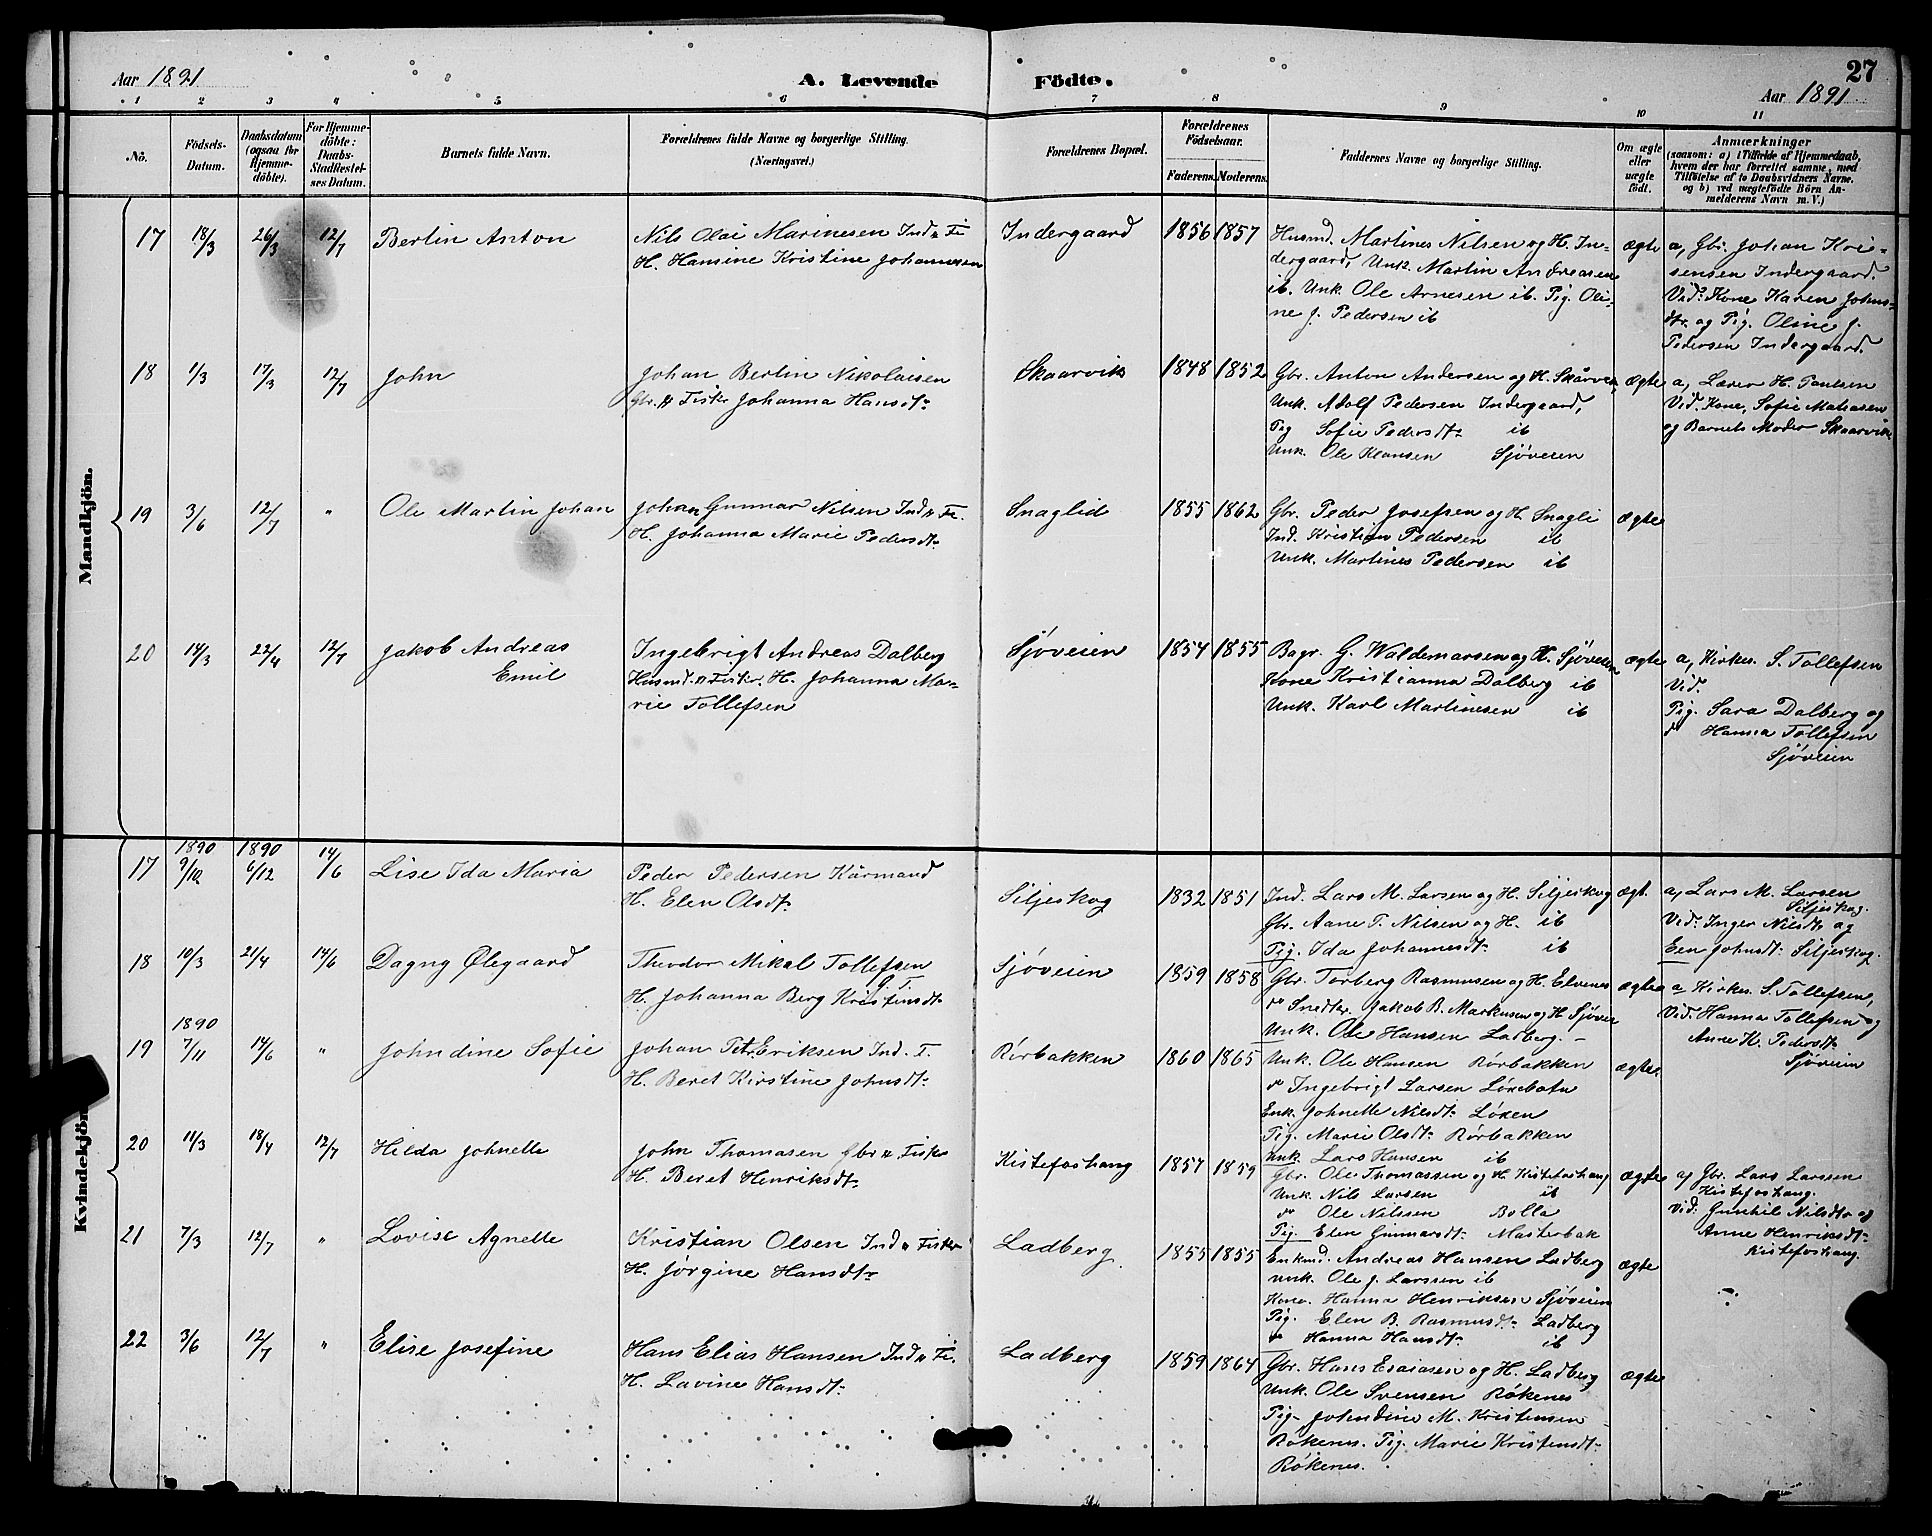 Aar 1891
A. Levende
Födte.
27
Aar 1891
1 2 3 4 5 6 7 8 9 10 11
No.
Födsels-
Datum.
Daabsdatum
(ogsaa for
Hjemme-
döbte).
For Hjemme-
döbte:
Daabs-
Stadfæstel-
ses Datum.
Barnets fulde Navn.
Forældrenes fulde Navne og borgerlige Stilling.
(Næringsvei.)
Forældrenes Bopæl.
Forældrenes
Födselsaar.
Faderens. Moderens.
Faddernes Navne og borgerlige Stilling.
Om ægte
eller
uægte
født.
Anmærkninger
(saasom: a) i Tilfælde af Hjemmedaab,
hvem der har forrettet samme, med
Tilföielse af to Daabsvidners Navne.
og b) ved uægtefödte Börn An-
melderens Navn m. V.)
Mandkjön.
17 18/3 26/3 12/7 Berlin Anton
Nils Olai Marinesen Ind. & Fi
H. Hansine Kristine Johannesen
Indergaard 1856 1857
Husmd. Martines Nilsen og H. In-
dergaard, Unk. Martin Andreasen
ib. Unk. Ole Arnesen ib. Pig. Oli-
ne J. Pedersen ib
ægte
a, Gbr. Johan Kri-
sensen Indergaard.
Vid: Kone Karen Johns-
dtr. og Pig. Oline J.
Pedersen Indergaard.
18 1/3 17/3 12/7 John
Johan Berlin Nikolaisen
Gbr. & Fisker Johanna Hansdt:
Skaarvik 1848 1852
Gbr. Anton Andersen og H. Skårven,
Unk. Adolf Pedersen Indergaard,
Pig Sofie Pedersdt: ib
Unk. Ole Klausen Sjøveien
ægte
a, Lærer H. Paulsen
Vid. Kone, Sofie Matiasen
og Barnets Moder Skaarvik
19 3/6 12/7 " Ole Martin Johan
Johan Gunnar Nilsen Ind. & Fi.
H. Johanna Marie Pedersdt:
Snaglid 1855 1862
Gbr. Peder Josefsen og H. Snagli
Ind. Kristian Pedersen ib
Unk. Martines Pedersen ib
ægte
20 14/3 22/4 12/7 Jakob Andreas
Emil
Ingebrigt Andreas Dalberg
Husmd. & Fisker. H. Johanna Ma-
rie Tollefsen
Sjøveien 1854 1855
Bagr. G. Waldemarsen og H. Sjøveien
Kone Kristianna Dalberg ib
Unk. Karl Martinesen ib
ægte
a, Kirkes. S. Tollefsen
Vid.
Pig. Sara Dalberg og
do Hanna Tollefsen
Sjøveien
Kvindekjön.
17 1890 9/10 1890 6/12 14/6 Lise Ida Maria
Peder Pedersen Kärmand
H. Elen Olsdt:
Siljeskog 1832 1851
Ind. Lars M. Larsen og H. Siljeskog
Gbr. Aane T. Nilsen og H. ib
Pig. Ida Johannesdt: ib
ægt.
a, Lars M. Larsen
Siljeskog.
Vid: Inger Nilsdtr og
Een Johnsdt: Siljeskog.
18 10/3 21/4 14/6 Dagny Ølegaard
Theodor Mikal Tollefsen
G. F.
H. Johanna Berg Kristensdt:
Sjøveien 1859 1858
Gbr. Torberg Rasmusen og H. Elvenes
do Snedker Jakob B. Markusen og H Sjøvei
Unk. Ole Hansen Ladberg. –
ægte
a Kirkes. S. Tollefsen,
Vid: Hanna Tollefsen og
Anne K. Pedersdt:
Sjøveien
19 1890 7/11 14/6 " Johndine Sofie
Johan Pet. Eriksen Ind. F.
H. Beret Kirstine Johnsdt:
Rørbakken 1860 1865
Unk. Ole Hansen Rørbakken
do Ingebrigt Larsen Løxebotn
Enk. Johnette Nilsdt: Løxen
Pig. Marie Olsdt: Rørbakken
Unk. Lars Hansen ib
ægte.
20 11/3 18/4 12/7 Hilda Johnette
John Thomasen Gbr & Fisker
H. Beret Henriksdt:
Kistefoshang 1857 1859
Gbr. Ole Thomassen og H Kistefoshang
Unk. Nils Larsen ib
do Ole Nilssen Bolla
Pig. Elen Gunnarsdt: Masterbak
ægte
a, Gbr. Lars Larssen
Kistefoshang.
Vid: Gunhil Nilsdtr og
Anne Henriksdt:
Kistefoshang.
21 7/3 12/7 " Lovise Agnette
Kristian Olsen Ind. & Fisker
H. Jørgine Hansdt:
Ladberg 1855 1855
Enkmd. Andreas Hansen Ladberg
Unk. Ole J. Larssen ib
Kone. Hanna Henriksen Sjøveien
Pig. Elen B. Rasmusdt: Ladberg
do Hanna Hansdt: ib
ægte
22 3/6 12/7 " Elise Josefine
Hans Elias Hansen Ind & Fi.
H. Lavine Hansdt:
Ladberg 1859 1864
Gbr. Hans Esaiasen og H. Ladberg
Unk. Ole Svensen Røkenes
Pig. Johndine M. Kristensen
Røkenes. Pig. Marie Kristensdt:
Røkenes.
ægte